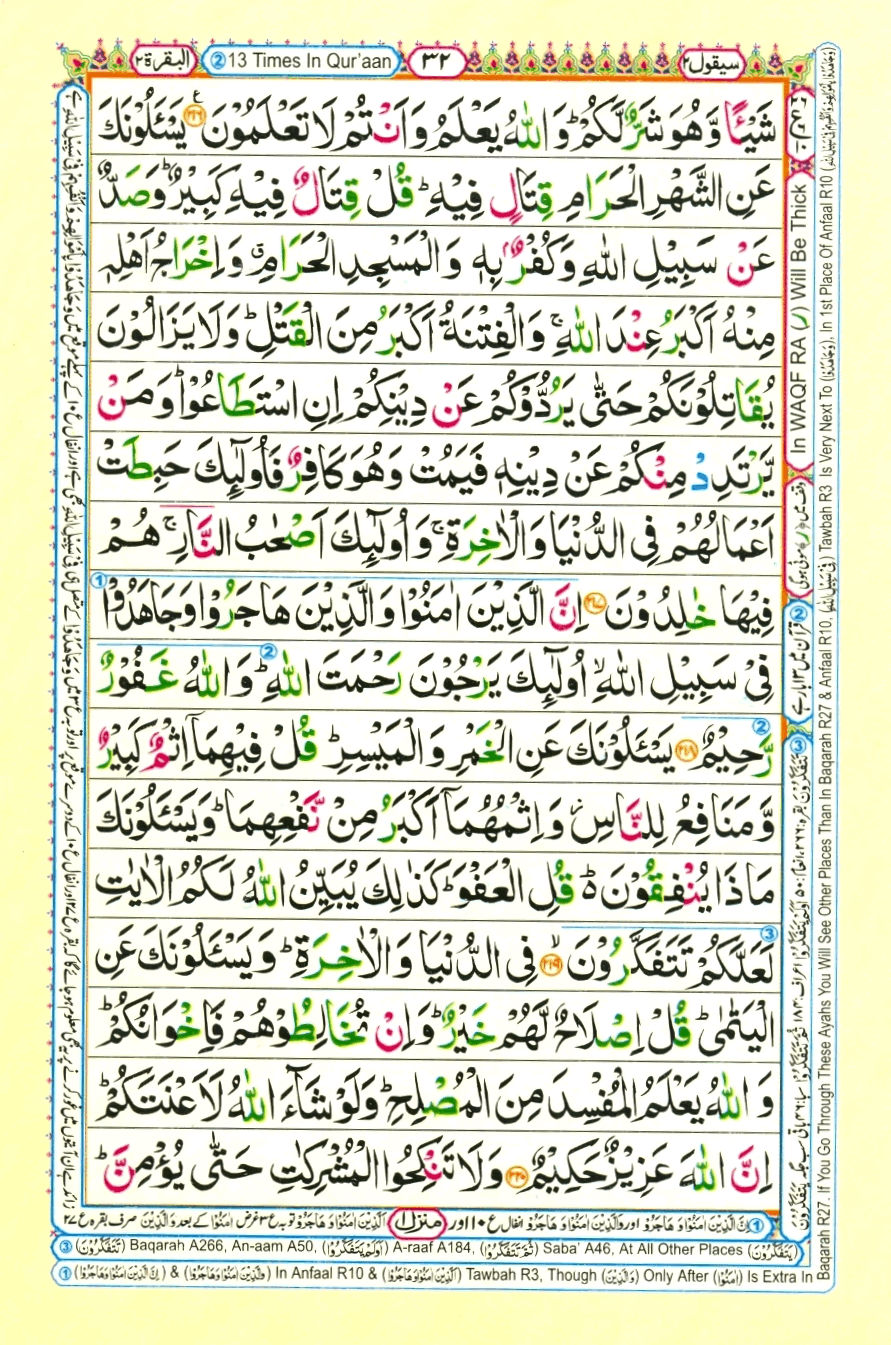 سيقول ٢
٣٢
② 13 Times In Qur'aan
البقرة ٢
شَيْـًٔا وَّهُوَ شَرٌّ لَّكُمْ ؕ وَاللّٰهُ يَعْلَمُ وَاَنْتُمْ لَا تَعْلَمُوْنَ ﴿۲۱۶﴾ يَسْـَٔلُوْنَكَ
عَنِ الشَّهْرِ الْحَرَامِ قِتَالٍ فِيْهِ ؕ قُلْ قِتَالٌ فِيْهِ كَبِيْرٌ ؕ وَصَدٌّ
عَنْ سَبِيْلِ اللّٰهِ وَكُفْرٌۢ بِهٖ وَالْمَسْجِدِ الْحَرَامِ ۗ وَاِخْرَاجُ اَهْلِهٖ
مِنْهُ اَكْبَرُ عِنْدَ اللّٰهِ ۚ وَالْفِتْنَةُ اَكْبَرُ مِنَ الْقَتْلِ ؕ وَلَا يَزَالُوْنَ
يُقَاتِلُوْنَكُمْ حَتّٰى يَرُدُّوْكُمْ عَنْ دِيْنِكُمْ اِنِ اسْتَطَاعُوْا ؕ وَمَنْ
يَّرْتَدِدْ مِنْكُمْ عَنْ دِيْنِهٖ فَيَمُتْ وَهُوَ كَافِرٌ فَاُولٰٓئِكَ حَبِطَتْ
اَعْمَالُهُمْ فِى الدُّنْيَا وَالْاٰخِرَةِ ۚ وَاُولٰٓئِكَ اَصْحٰبُ النَّارِ ۚ هُمْ
فِيْهَا خٰلِدُوْنَ ﴿۲۱۷﴾ اِنَّ الَّذِيْنَ اٰمَنُوْا وَالَّذِيْنَ هَاجَرُوْا وَجَاهَدُوْا ①
فِىْ سَبِيْلِ اللّٰهِ ۙ اُولٰٓئِكَ يَرْجُوْنَ رَحْمَتَ اللّٰهِ ؕ ② وَاللّٰهُ غَفُوْرٌ
رَّحِيْمٌ ② ﴿۲۱۸﴾ يَسْـَٔلُوْنَكَ عَنِ الْخَمْرِ وَالْمَيْسِرِ ؕ قُلْ فِيْهِمَآ اِثْمٌ كَبِيْرٌ
وَّمَنَافِعُ لِلنَّاسِ ز وَاِثْمُهُمَآ اَكْبَرُ مِنْ نَّفْعِهِمَا ؕ وَيَسْـَٔلُوْنَكَ
مَاذَا يُنْفِقُوْنَ ۬ؕ قُلِ الْعَفْوَ ؕ كَذٰلِكَ يُبَيِّنُ اللّٰهُ لَكُمُ الْاٰيٰتِ
لَعَلَّكُمْ تَتَفَكَّرُوْنَ ③ ﴿۲۱۹﴾ فِى الدُّنْيَا وَالْاٰخِرَةِ ؕ وَيَسْـَٔلُوْنَكَ عَنِ
الْيَتٰمٰى ؕ قُلْ اِصْلَاحٌ لَّهُمْ خَيْرٌ ؕ وَاِنْ تُخَالِطُوْهُمْ فَاِخْوَانُكُمْ ؕ
وَاللّٰهُ يَعْلَمُ الْمُفْسِدَ مِنَ الْمُصْلِحِ ؕ وَلَوْ شَآءَ اللّٰهُ لَاَعْنَتَكُمْ ؕ
اِنَّ اللّٰهَ عَزِيْزٌ حَكِيْمٌ ﴿۲۲۰﴾ وَلَا تَنْكِحُوا الْمُشْرِكٰتِ حَتّٰى يُؤْمِنَّ ؕ
In WAQF RA (ر) Will Be Thick
وقف میں (ر) موٹی ہوگی
② قرآن میں ۱۳ بار ہے
منزل ۱
③ (تَتَفَكَّرُوْنَ) Baqarah A266, An-aam A50, (اَوَلَمْ يَتَفَكَّرُوْا) A-raaf A184, (ثُمَّ تَتَفَكَّرُوْا) Saba' A46, At All Other Places (يَتَفَكَّرُوْنَ)
① (اِنَّ الَّذِيْنَ اٰمَنُوْا وَهَاجَرُوْا) & (وَالَّذِيْنَ اٰمَنُوْا وَهَاجَرُوْا) In Anfaal R10 & (اَلَّذِيْنَ اٰمَنُوْا وَهَاجَرُوْا) Tawbah R3, Though (وَالَّذِيْنَ) Only After (اٰمَنُوْا) Is Extra In
Baqarah R27. If You Go Through These Ayahs You Will See Other Places Than In Baqarah R27 & Anfaal R10, (فِىْ سَبِيْلِ اللّٰهِ) Tawbah R3 Is Very Next To (وَجَاهَدُوْا), In 1st Place Of Anfaal R10